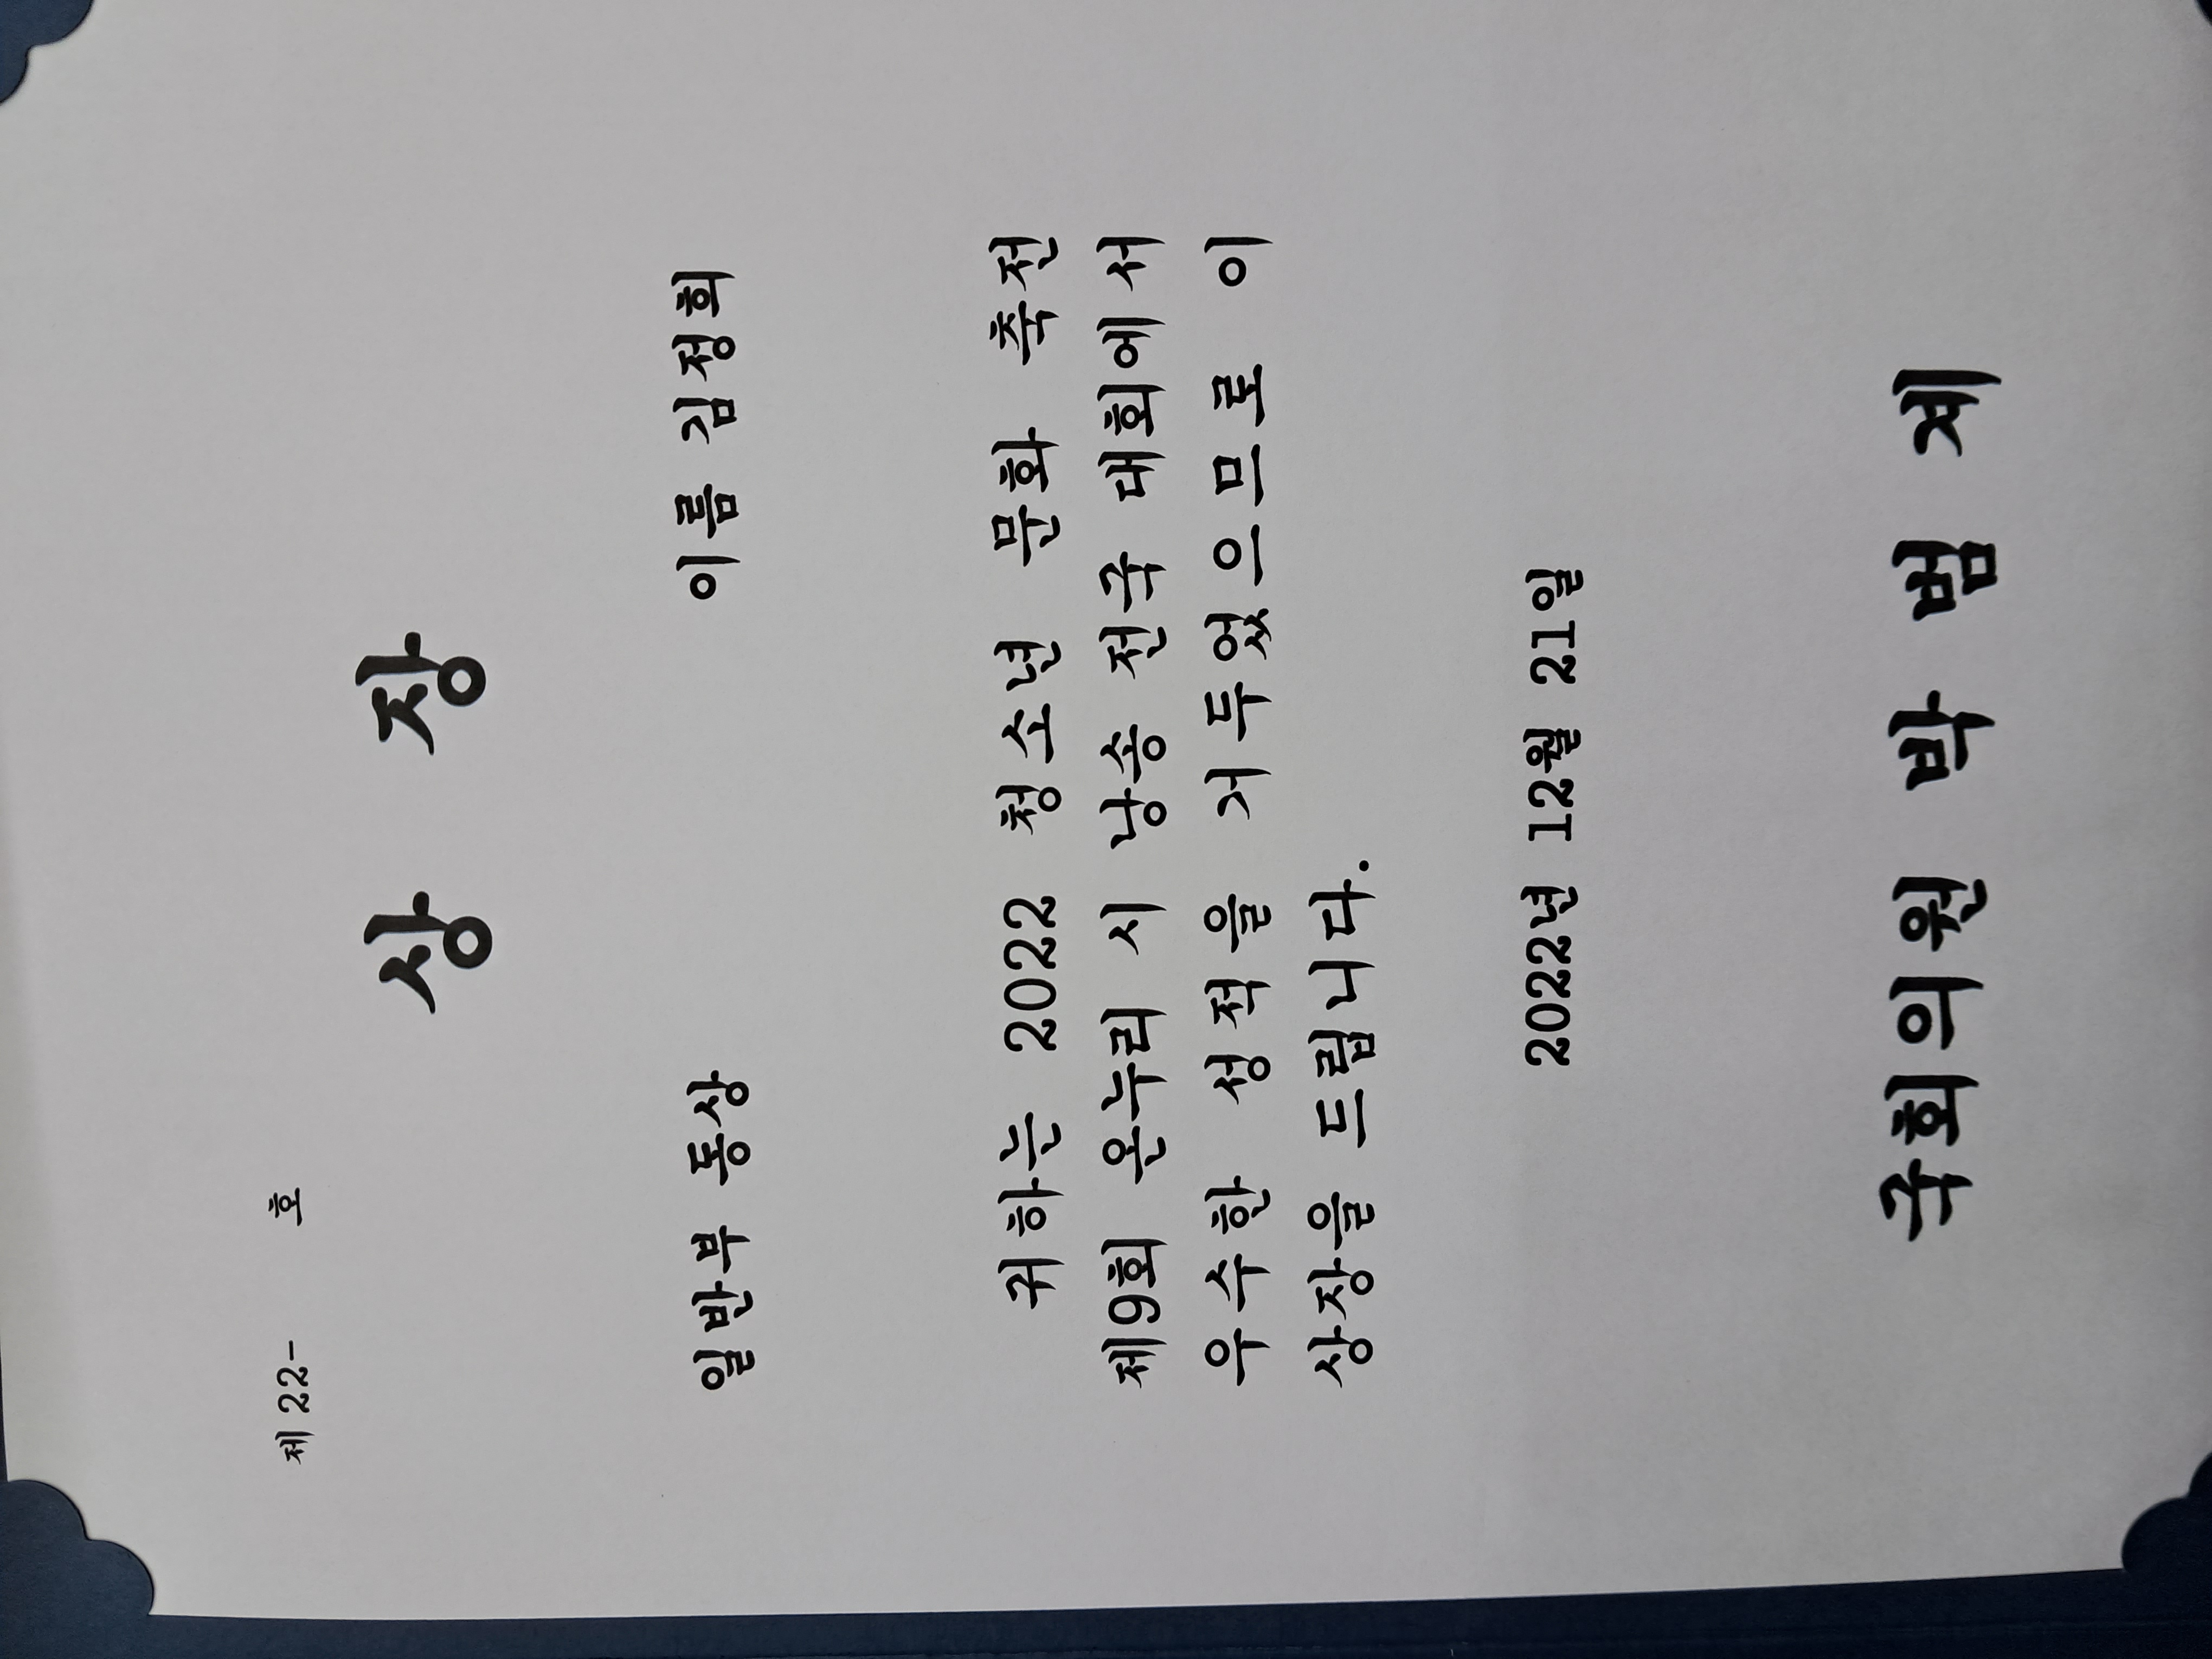 제 22-    호
상 장
일반부 동상 이름 김정희
귀하는 2022 청소년 문화 축전
제9회 온누리 시 낭송 전국 대회에서
우수한 성적을 거두었으므로 이
상장을 드립니다.
2022년 12월 21일
국회의원 박 범 계